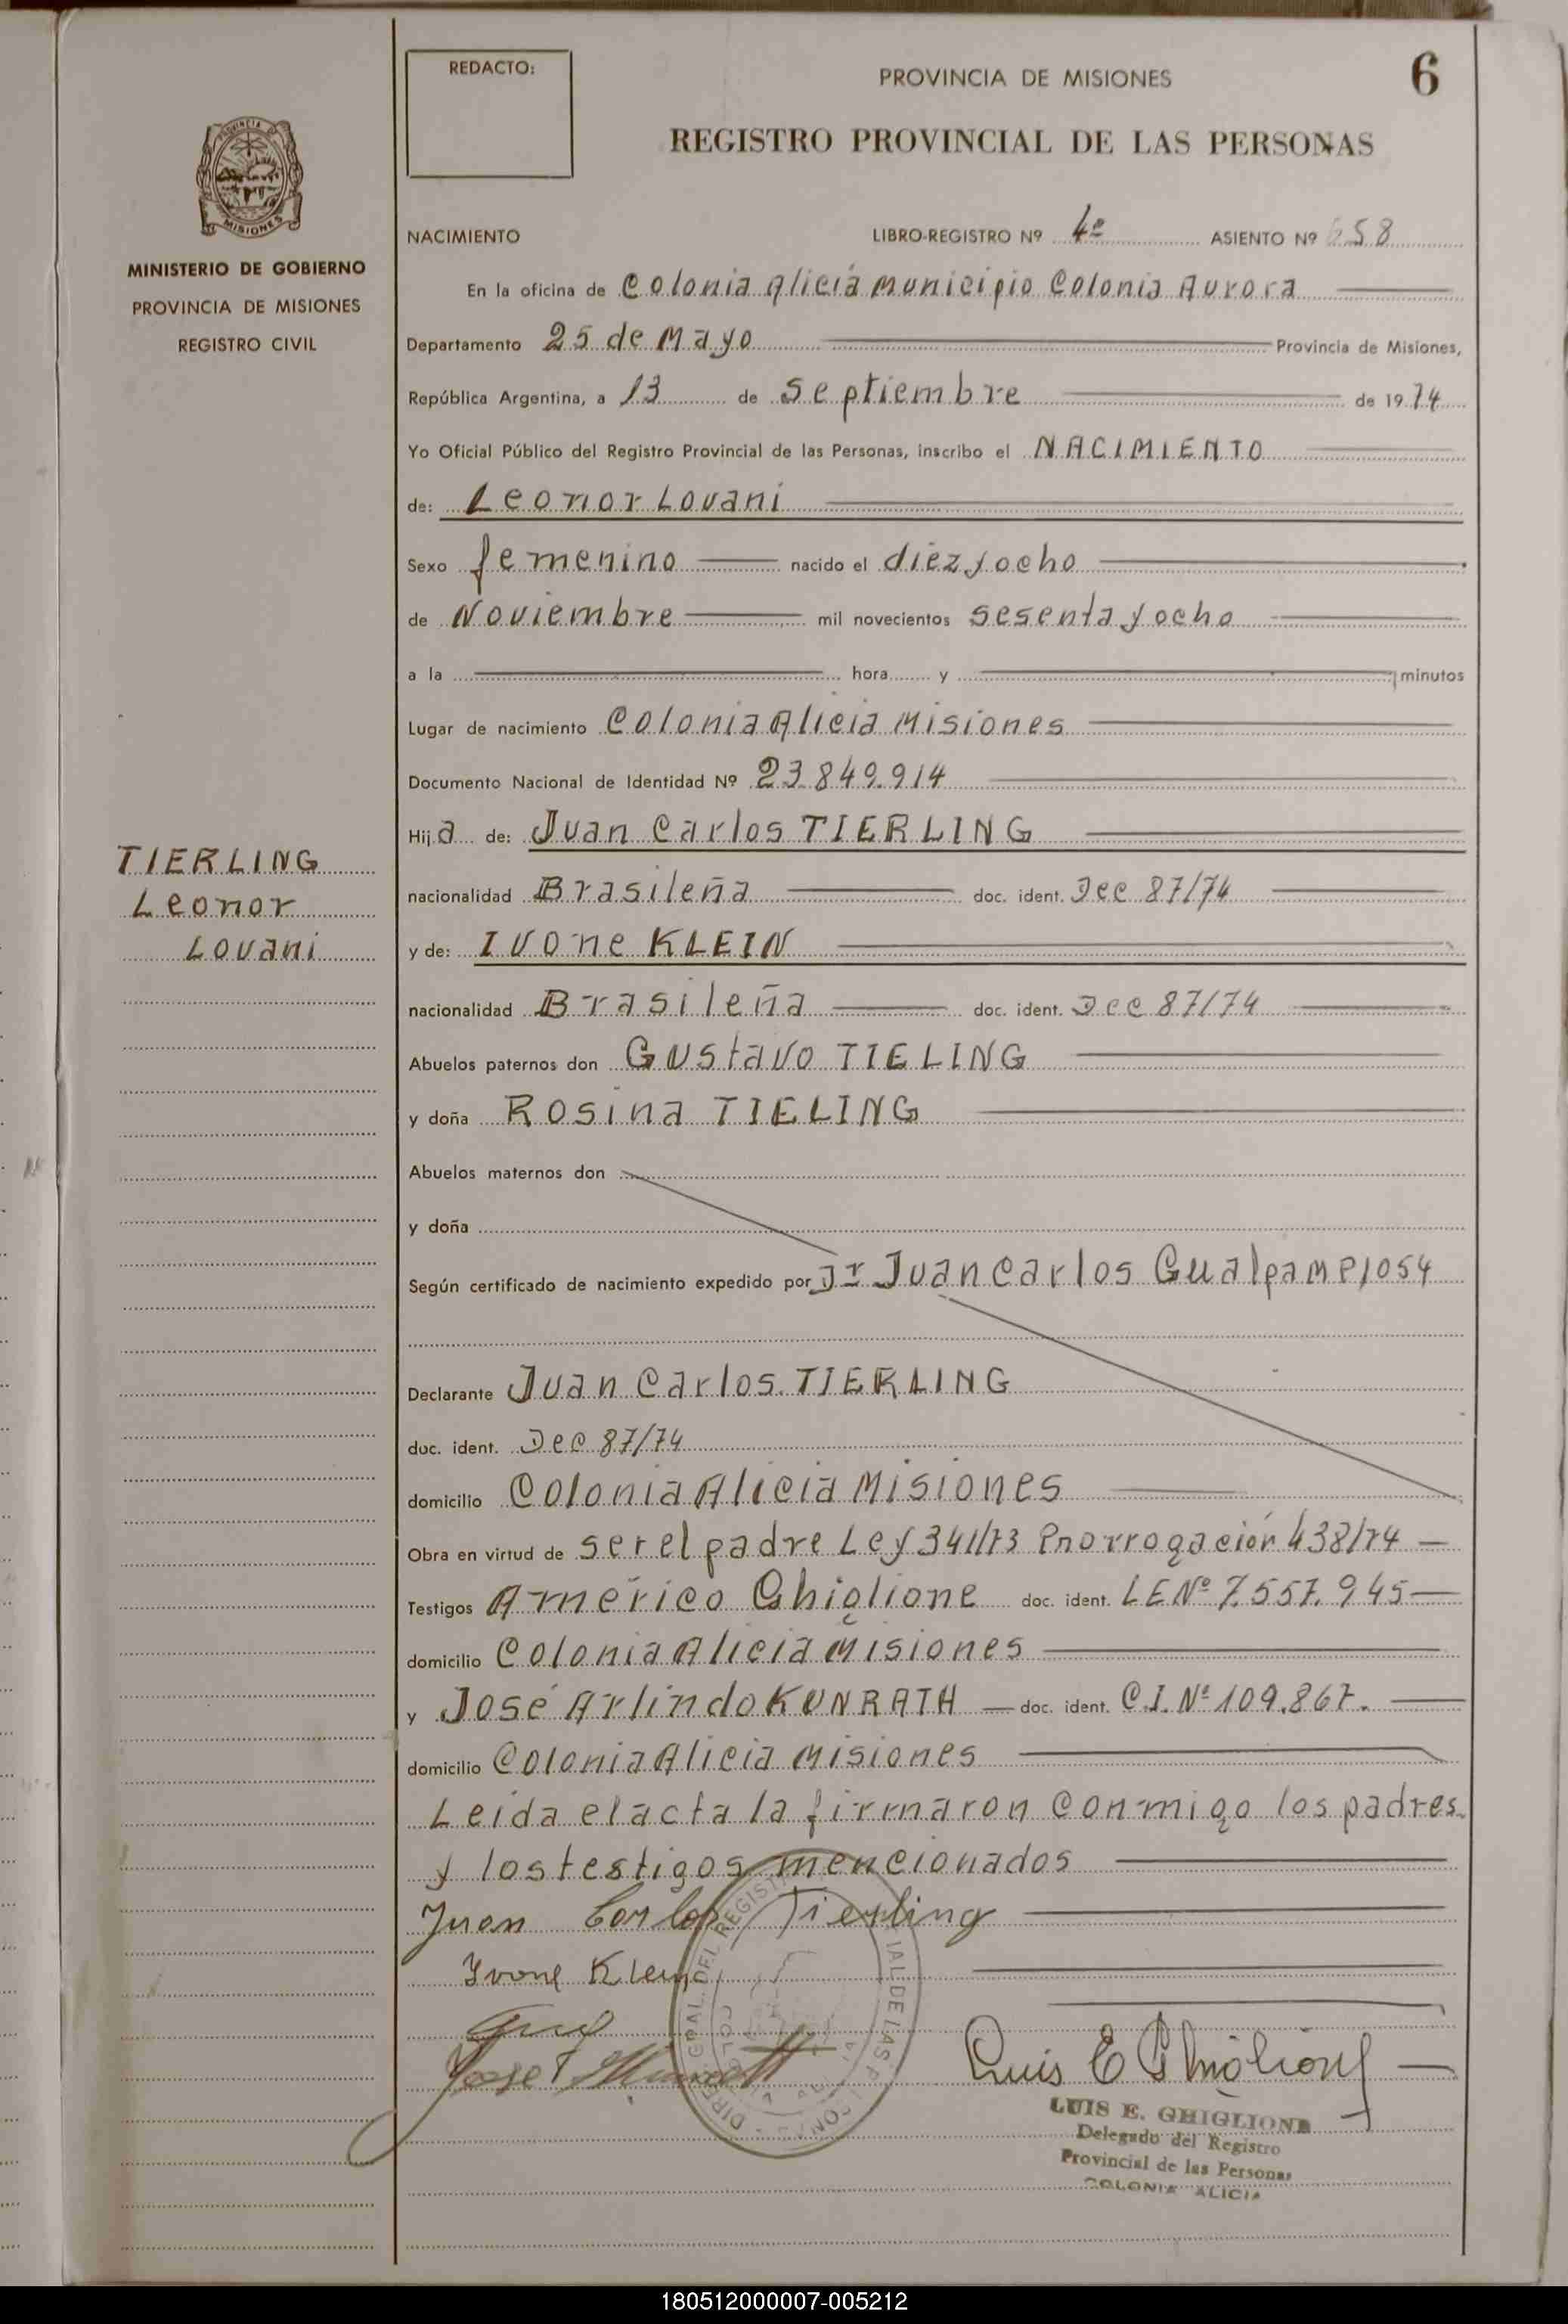 REDACTO:
PROVINCIA DE MISIONES
6
REGISTRO PROVINCIAL DE LAS PERSONAS
PROVINCIA DE
MISIONES
MINISTERIO DE GOBIERNO
PROVINCIA DE MISIONES
REGISTRO CIVIL
NACIMIENTO LIBRO-REGISTRO Nº 4º ASIENTO Nº 658
En la oficina de Colonia Alicia Municipio Colonia Aurora
Departamento 25 de Mayo Provincia de Misiones,
República Argentina, a 13 de Septiembre de 1974
Yo Oficial Público del Registro Provincial de las Personas, inscribo el NACIMIENTO
de: Leonor Lovani
Sexo femenino nacido el diez y ocho
de Noviembre mil novecientos sesenta y ocho
a la hora y minutos
Lugar de nacimiento Colonia Alicia Misiones
Documento Nacional de Identidad Nº 23.849.914
Hija de: Juan Carlos TIERLING
nacionalidad Brasileña doc. ident. Dec 87/74
y de: Ivone KLEIN
nacionalidad Brasileña doc. ident. Dec 87/74
Abuelos paternos don Gustavo TIELING
y doña Rosina TIELING
Abuelos maternos don
y doña
Según certificado de nacimiento expedido por Dr Juan Carlos Gualpa MP1054
Declarante Juan Carlos TIERLING
doc. ident. Dec 87/74
domicilio Colonia Alicia Misiones
Obra en virtud de ser el padre Ley 341/73 Prorrogación 438/74
Testigos Américo Ghiglione doc. ident. LE Nº 7.557.945
domicilio Colonia Alicia Misiones
y José Arlindo KUNRATH doc. ident. C.I. Nº 109.867.
domicilio Colonia Alicia Misiones
Leida el acta la firmaron conmigo los padres
y los testigos mencionados
Juan Carlos Tierling
Ivone Klein
Luis E Ghiglione
LUIS E. GHIGLIONE
Delegado del Registro
Provincial de las Personas
COLONIA ALICIA
TIERLING
Leonor
Lovani
180512000007-005212